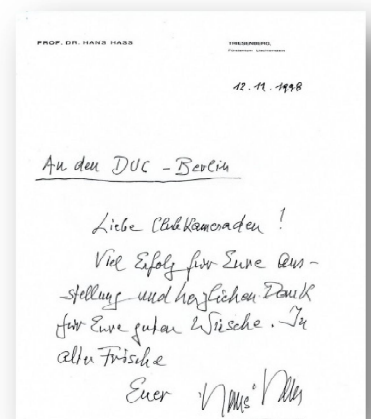 PROF. DR. HANS HASS
TRIESENBERG,
Fürstentum Liechtenstein
12.11.1998
An den DUC - Berlin
Liebe Clubkameraden !
Viel Erfolg für Eure Aus-
stellung und herzlichen Dank
für Eure guten Wünsche. In
alter Frische
Euer "Hans" Hass